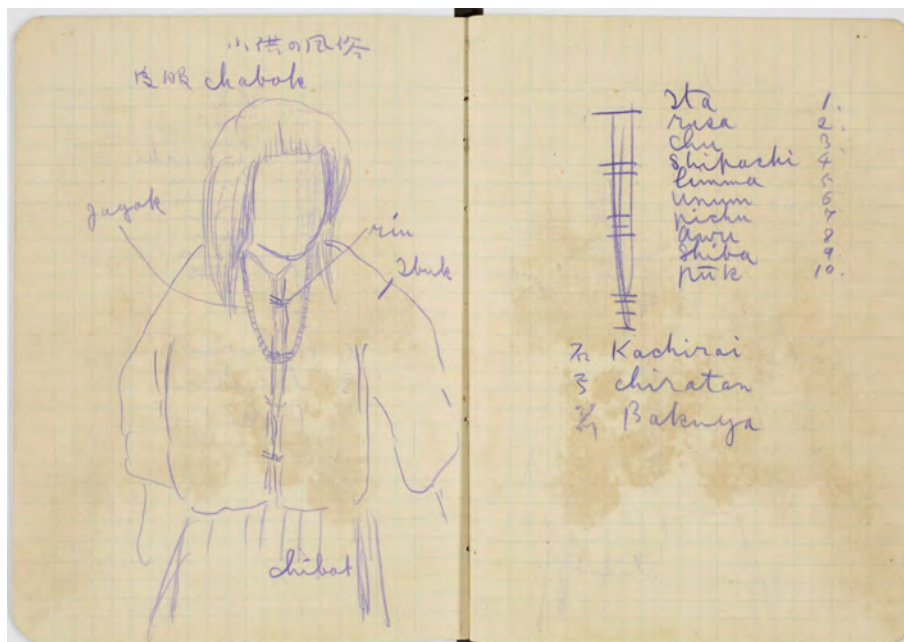 小供の風俗
皮服 chabok
jagok
rin
Ibuk
chibat
Ita 1.
rusa 2.
chu 3.
Shipachi 4
limma 5
Unum 6
pichu 7
Awu 8
Shiba 9.
pūk 10.
石 Kachirai
弓 chiratan
Bakuya